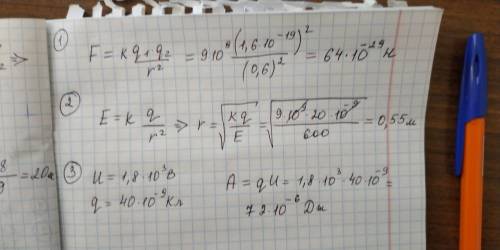 ⇒
① F = k q₁ · q₂ / r² = 9·10⁹ (1,6·10⁻¹⁹)² / (0,6)² = 64·10⁻²⁹ Н
② E = k q / r² ⇒ r = √(kq / E) = √(9·10⁹·20·10⁻⁹ / 600) = 0,55 м
8 / 9 = 20
③ U = 1,8·10³ В A = qU = 1,8·10³·40·10⁻⁹ =
q = 40·10⁻⁹ Кл 72·10⁻⁶ Дж